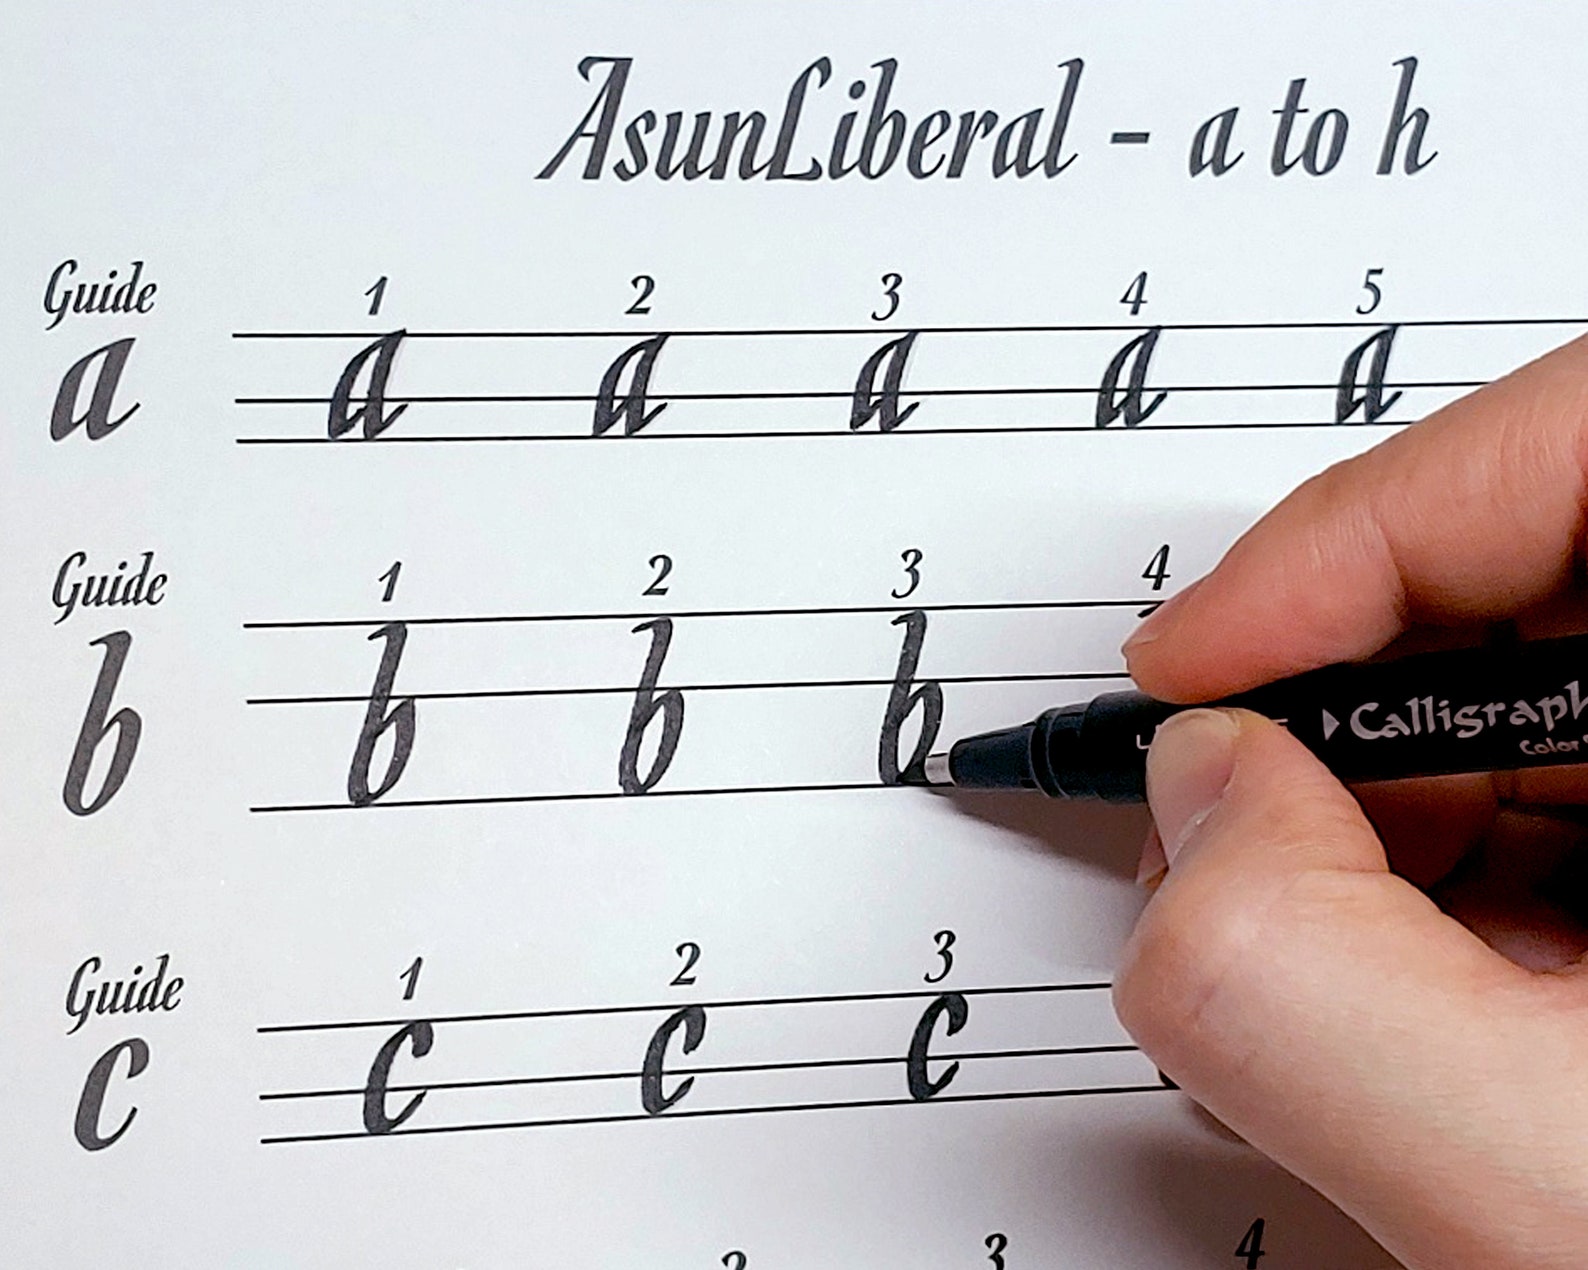 AsunLiberal - a to h
Guide 1 2 3 4 5
a a a a a a
Guide 1 2 3 4
b b b b
Calligraph
Color
Guide 1 2 3
c c c c
2 3 4